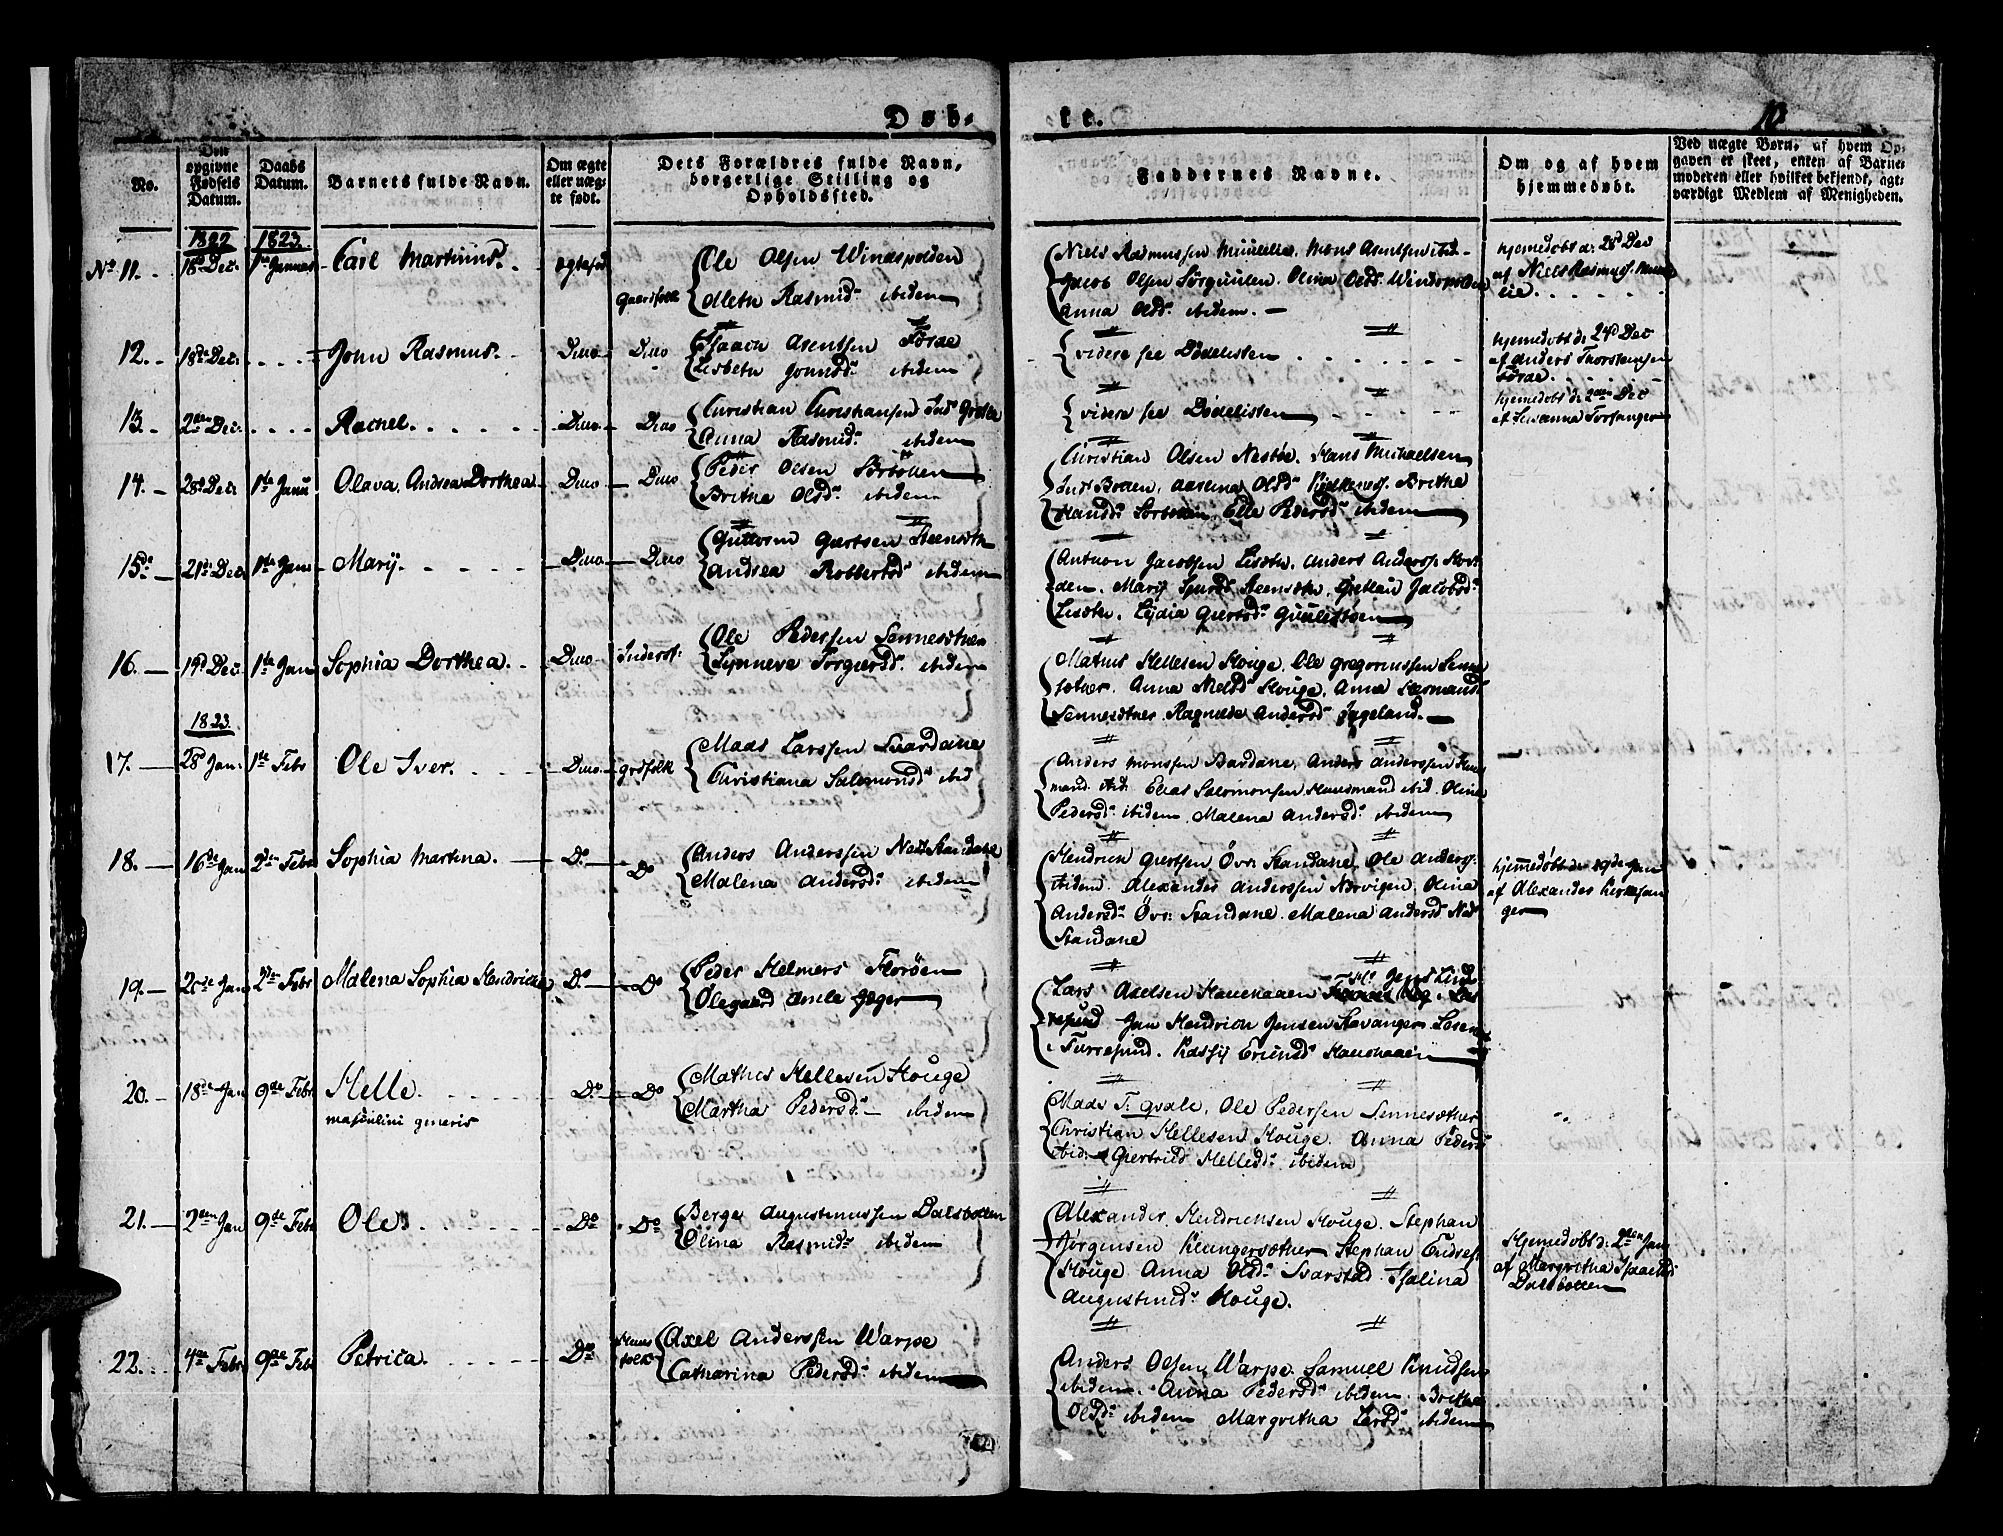 Døb-
te.
10
No.
Den opgivne Fødsels Datum.
Daabs Datum.
Barnets fulde Navn.
Om ægte eller uægte født.
Dets Forældres fulde Navn, borgerlige Stilling og Opholdssted.
Faddernes Navne.
Om og af hvem hjemmedøbt.
Ved uægte Børn, af hvem Opgaven er skeet, enten af Barnemoderen eller hvilket bekjendt, agtværdigt Medlem af Menigheden.
1822 1823
No 11. 18d Dec: 1ste Januar Carl Martinus. ægtefød Gaardfolk
Ole Olsen Windspolden
Oletha Rasmusd. ibidem
Niels Rasmussen Muulelie. Mons Asentsen ibid
Jacob Olsen Sørguulen. Olina Olsd. Windspolden
Anna Olsd. ibidem.
hjemedøbt d: 28d Dec
af Niels Rasmus. Muule
lie.
12. 18de Dec: John Rasmus. Ditto Ditto
Isaach Asentsen Førde
Lisbeth Jonnsd. ibidem
videre see Dødelisten
hjemedøbt d: 24d Dec
af Anders Thorstensen
Førde.
13. 2den Dec: Rachel. Ditto Ditto
Christian Christiansen Ind
Anna Rasmusd. ibidem
videre see Dødelisten
hjemedøbt d: 2den Dec
af Susanna Torsanger
14. 28d Dec: 1ste Janu Olava Andrea Dorthea Ditto Ditto
Peder Olsen Sørbotten
Brithe Olsd. ibidem
Christian Olsen Nestøe. Hans Michaelsen
Indr Botten. Brithe
Hansd: Sørbotten. Elle Pedersd. ibidem
15de 21de Dec. 1ste Jan: Marij. Ditto Ditto
Guttorm Giertsen Steensæth
Andrea Robbertsd ibidem
Anthon Jacobsen Lisæth. Anders Anders.
den. Marij Steensæth. Jacobsd.
Lisæth. Lydia Giertsd.
16. 19d Dec. 1ste Jan Sophia Dorthea. Ditto Inderst:
Ole Pedersen Sennesæther
Synneva Torgersd. ibidem
Mathis Hellesen Houge. Ole Gregoriussen Senne
sæther. Anna Nielsd Houge. Anna Hermansd
Sennesæther Ragnilde Andersd Jageland.
1823
17. 28d Jan: 1ste Febr Ole Iver. Ditto grdfolk
Mads Larssen Svardane
Christiana Salomonsd. ibid
Anders Monssen Svardane. Anders Anderssen Huus
mand. ibid. Elias Salomonsen Huusmand ibid. Olina
Pedersd. ibidem. Malena Andersd. ibidem
18. 16de Jan 2den Febr Sophia Martina. Do. Do
Anders Anderssen Ned: Standane
Malena Andersd. ibidem
Hendrich Giertsen Øvr: Standane. Ole Anders.
ibidem. Alexander Anderssen Norvigen. Olina
Andersd: Øvr: Standane. Malena Andersd Ned
Standane
hjemedøbt den 19de Jan
af Alexander Kirkesan
ger
19. 20de Jan 2den Febr Malena Sophia Hendricha Do. Do
Peder Helmers Florøen
Ølegaard Amle Jæger
Lars Axelsen Hauehaaen Hr. Jens Lind
Jan Hendrich Jensen Stavanger
Hauehaaen
20. 18de Jan 9de Febr Helle. Do. Do
masculini generis
Mathis Hellesen Houge
Martha Pedersd. ibidem
Mads T: Qvale. Ole Pedersen Sennesæther
Christian Hellesen Houge. Anna Pedersd
ibid: Giertrud Hellesd. ibidem
21. 2den Jan 9de Febr Ole. Do Do
Berge Augustinussen Dalsbotten
Olina Rasmusd. ibidem
Alexander Hendrichsen Houge. Stephan
Jørgensen Klungersæther Stephan Endres.
Houge Anna Olsd. Svarstad. Isalina
Augustinusd. Houge.
Hjemedøbt d: 2den Jan
af Margretha Isaachsd
Dalsbotten
22. 4de Febr 9de Febr Petrica. Do Huus
folk
Axel Anderssen Warpe
Catharina Pedersd. ibidem
Anders Olsen Warpe. Samuel Knudsen
ibidem. Anna Pedersd. ibidem. Brithe
Olsd. ibidem Margretha Larsd. ibidem